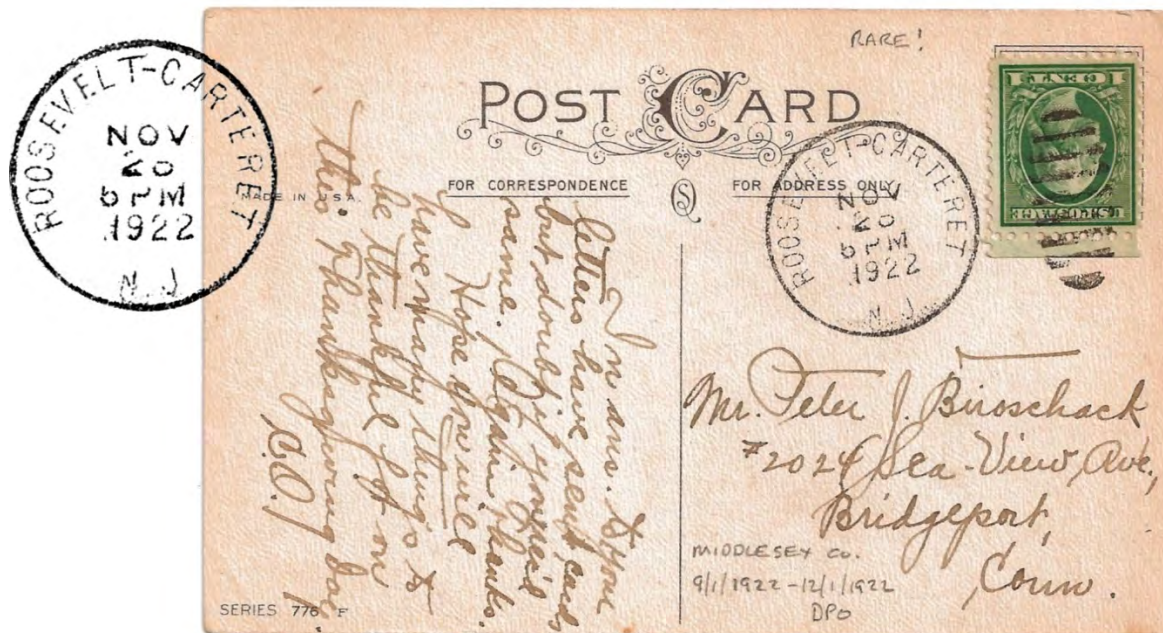 ROOSEVELT-CARTERET
NOV
20
PM
1922
N.J.
RARE!
POST CARD
MADE IN U.S.A.
FOR CORRESPONDENCE
FOR ADDRESS ONLY
ROOSEVELT-CARTERET
NOV
20
PM
1922
N.J.
In ans. to your
letters have sent cards
but doubt if you rec'd
same. Again thanks.
Hope you will
have many things to
be thankful for on
this Thanksgiving day.
Mr. Peter J. Biroschack
#2024 Sea-View Ave,
Bridgeport,
Conn.
MIDDLESEX CO.
9/1/1922-12/1/1922
DPO
SERIES 776 F